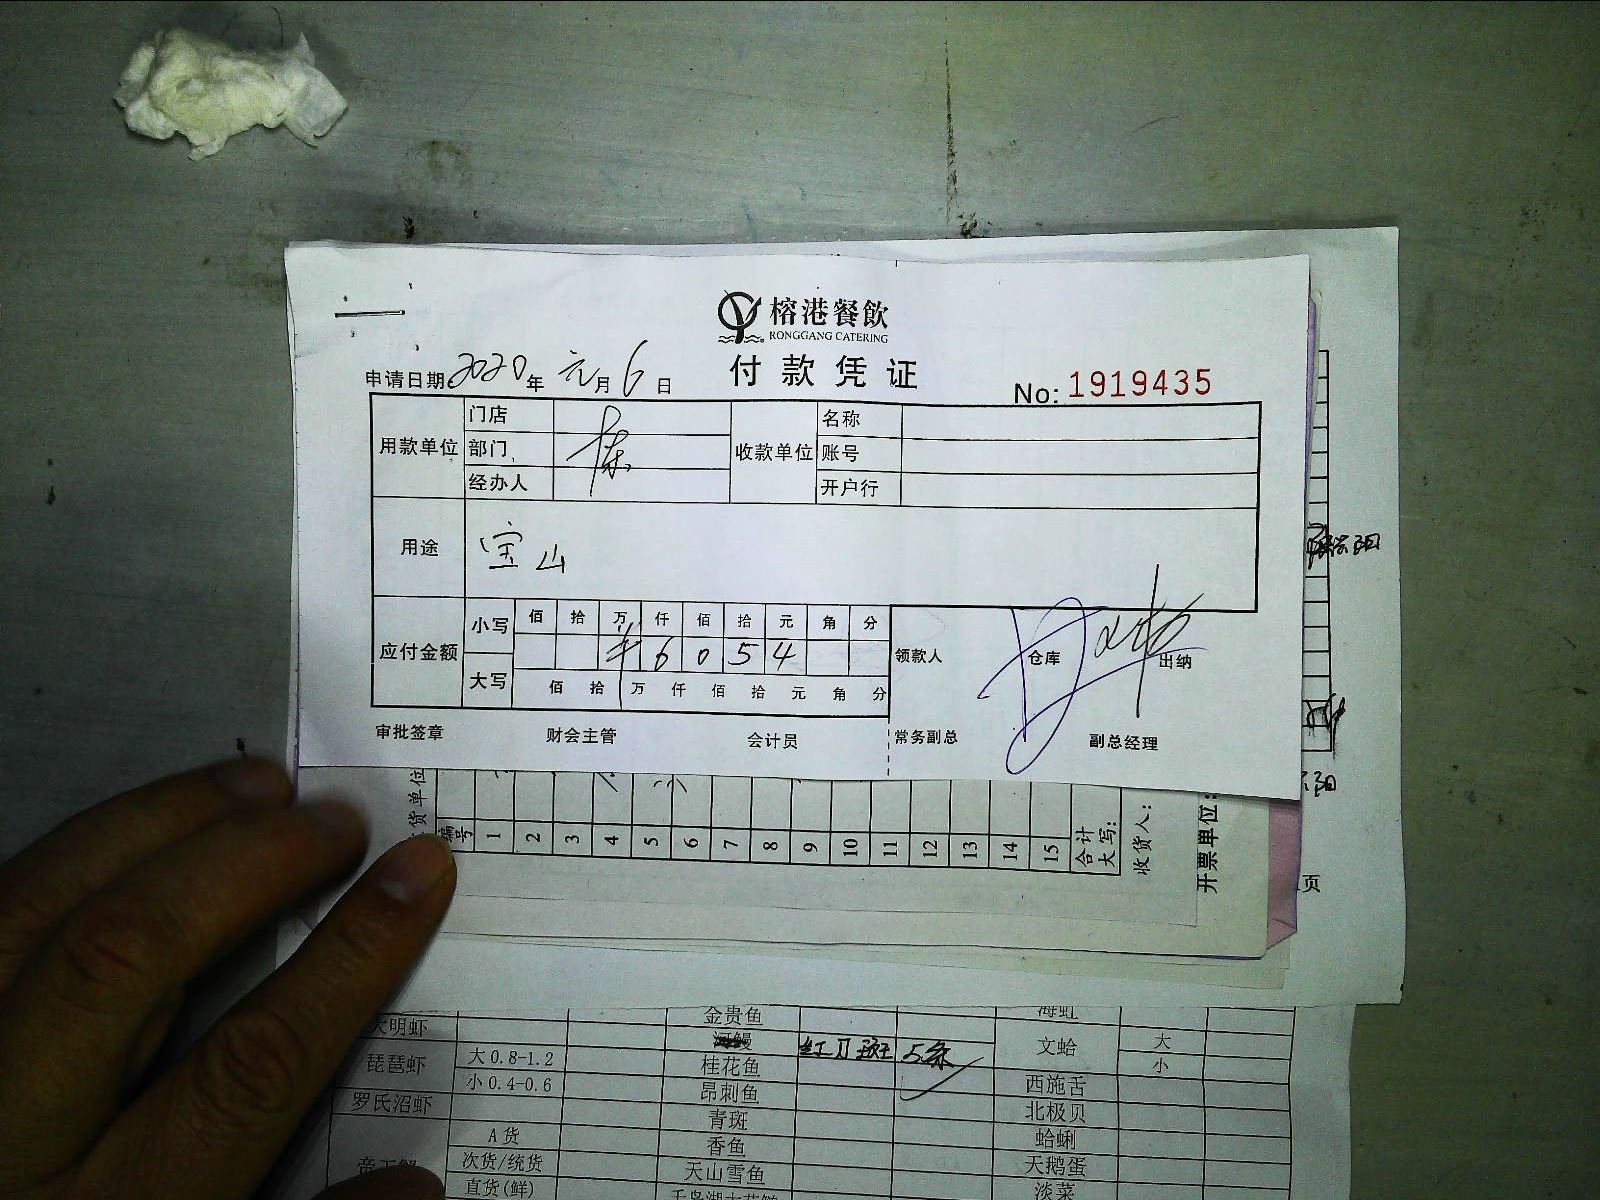 榕港餐飲
RONGGANG CATERING
付款凭证
申请日期: 2020年 元月 6日
No: 1919435
用款单位 门店 收款单位 名称
部门 账号
经办人 开户行
用途 宝山
应付金额 小写 佰 拾 万 仟 佰 拾 元 角 分
¥ 6 0 5 4
大写 佰 拾 万 仟 佰 拾 元 角 分
领款人 仓库 出纳
审批签章 财会主管 会计员 常务副总 副总经理
货单位
编号 1 2 3 4 5 6 7 8 9 10 11 12 13 14 15 合计 大写: 收货人: 开票单位:
页
金贵鱼 海虹
大明虾 河鳗 文蛤 大
琵琶虾 大 0.8-1.2 桂花鱼 红刀斑 5条 小
小 0.4-0.6 昂刺鱼 西施舌
罗氏沼虾 青斑 北极贝
A 货 香鱼 蛤蜊
次货/统货 天山雪鱼 天鹅蛋
直货(鲜) 淡菜